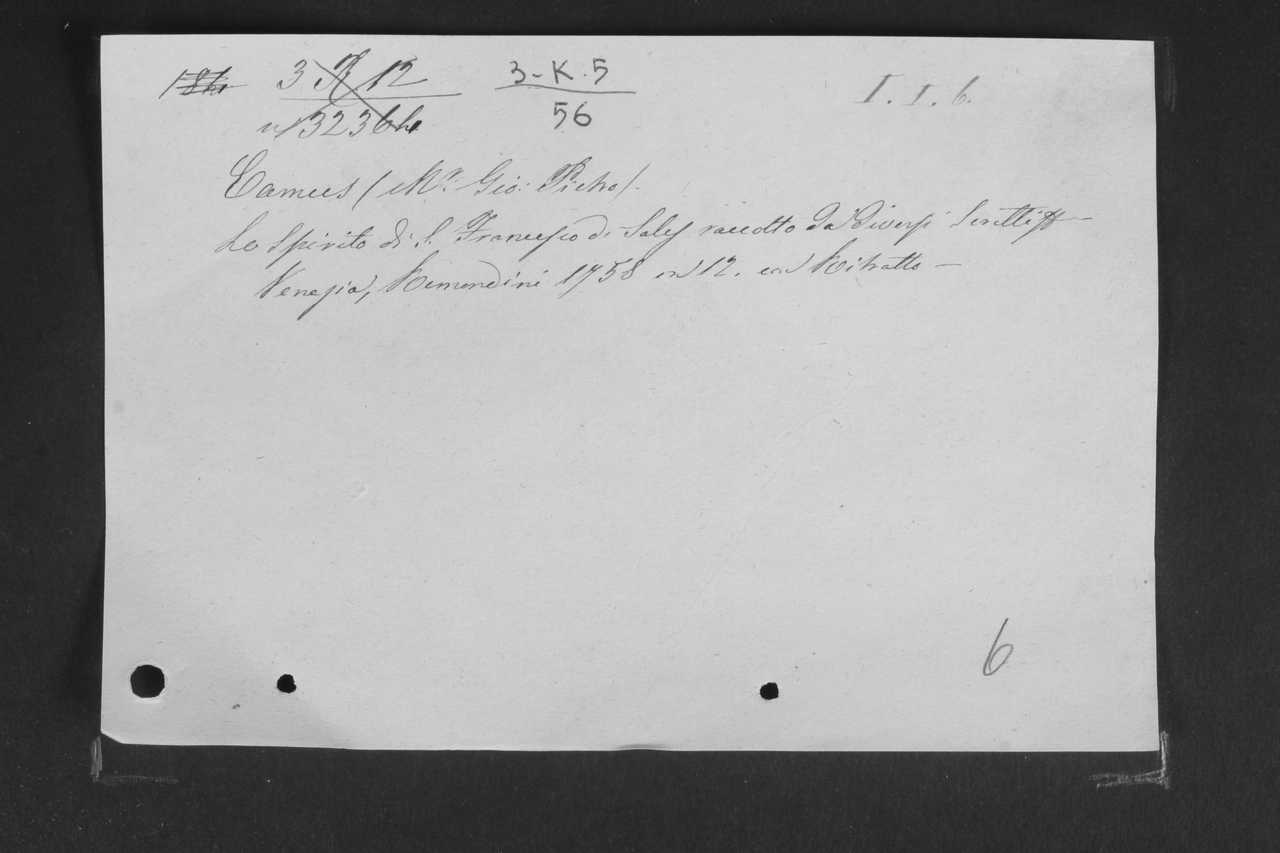 3 K 12 3-K.5 I. I. 6.
3236 56
Camus (Mr. Gio: Pietro).
Lo Spirito di S. Francesco di Sales raccotto da diversi Scritti
Venezia, Remondini 1758 in 12. con Ritratto —
6